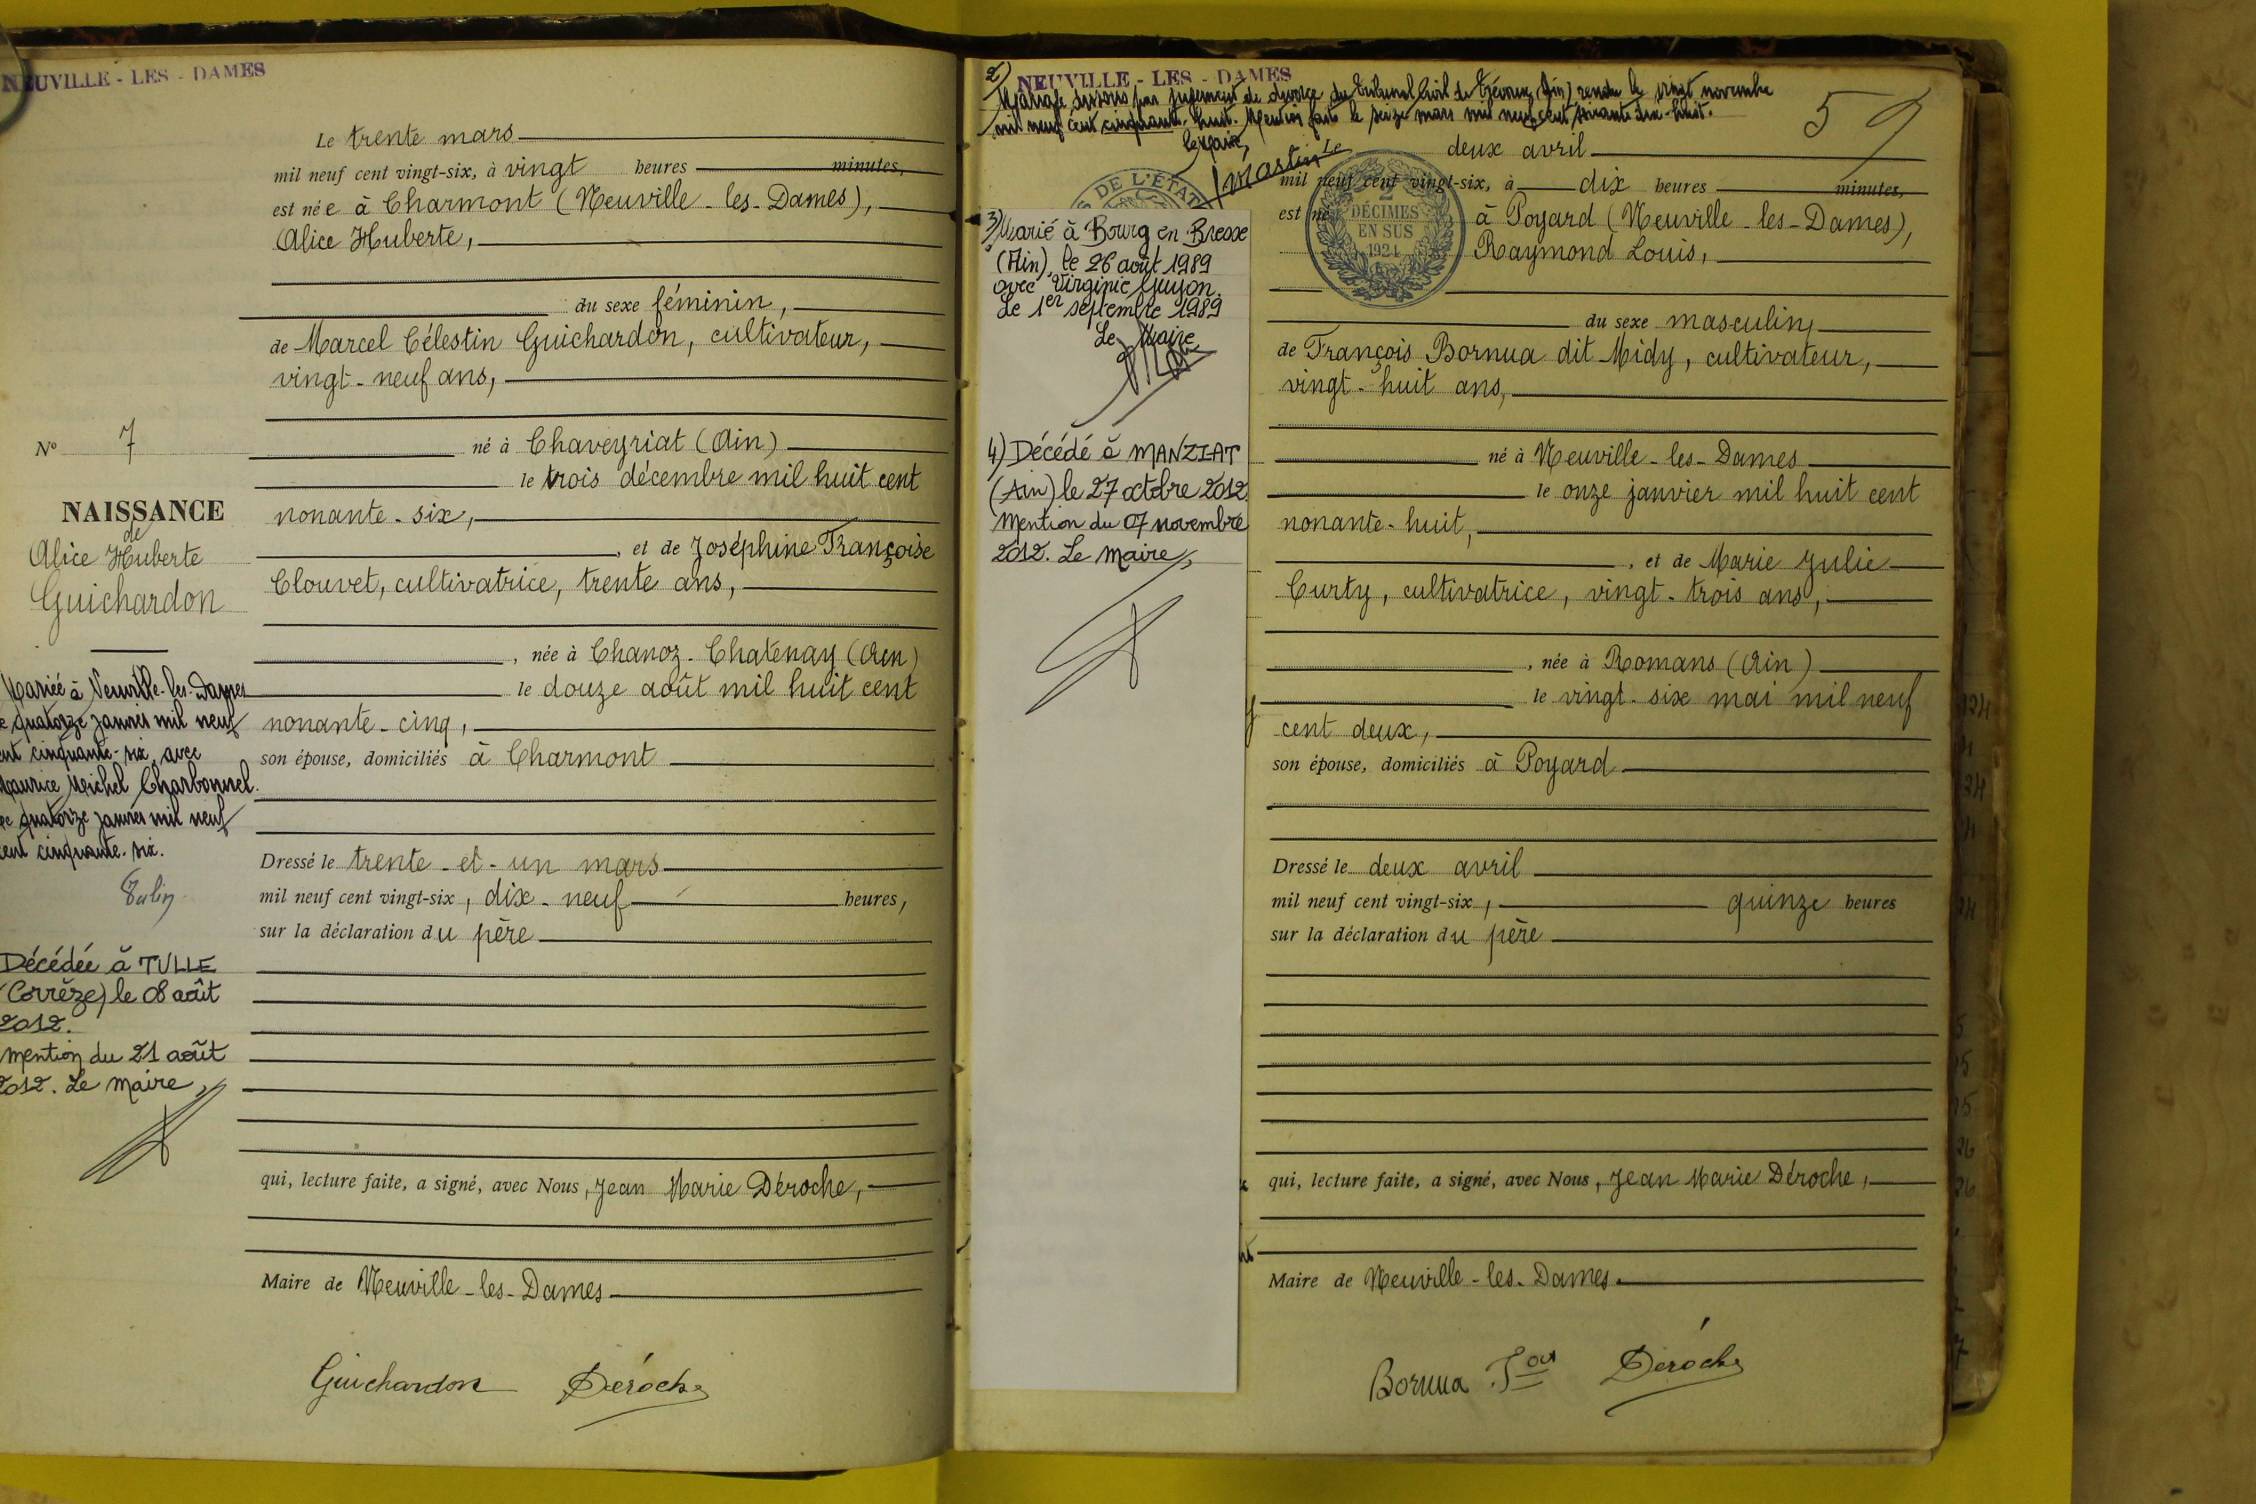 NEUVILLE - LES - DAMES
Le trente mars
mil neuf cent vingt-six, à vingt heures minutes,
est née à Charmont (Neuville-les-Dames),
Alice Huberte,
du sexe féminin,
de Marcel Célestin Guichardon, cultivateur,
vingt-neuf ans,
né à Chaveyriat (Ain)
le trois décembre mil huit cent
nonante-six,
, et de Joséphine Françoise
Clouvet, cultivatrice, trente ans,
, née à Chanoz-Chatenay (Ain)
le douze août mil huit cent
nonante-cinq,
son épouse, domiciliés à Charmont
Dressé le trente-et-un mars
mil neuf cent vingt-six, dix-neuf heures,
sur la déclaration du père
qui, lecture faite, a signé, avec Nous, Jean Marie Déroche,
Maire de Neuville-les-Dames
Guichardon Déroche
N° 7
NAISSANCE
de
Alice Huberte
Guichardon
Mariée à Neuville-les-Dames
le quatorze janvier mil neuf
cent cinquante-six avec
Maurice Michel Charbonnel.
Le quatorze janvier mil neuf
cent cinquante-six.
Décédée à TULLE
(Corrèze) le 08 août
2012.
Mention du 21 août
2012. Le Maire,
NEUVILLE - LES - DAMES
2) Mariage dissous par jugement de divorce du tribunal Civil de Trévoux (Ain) rendu le vingt novembre
mil neuf cent cinquante-huit. Mention faite le seize mars mil neuf cent soixante dix-huit.
Le Maire,
5
Le deux avril
mil neuf cent vingt-six, à dix heures minutes,
est né à Poyard (Neuville-les-Dames),
Raymond Louis,
DE L'ÉTAT
2
DÉCIMES
EN SUS
1924
du sexe masculin,
de François Bornua dit Midy, cultivateur,
vingt-huit ans,
né à Neuville-les-Dames
le onze janvier mil huit cent
nonante-huit,
, et de Marie Julie
Curty, cultivatrice, vingt-trois ans,
, née à Romans (Ain)
le vingt-six mai mil neuf
cent deux,
son épouse, domiciliés à Poyard
Dressé le deux avril
mil neuf cent vingt-six, quinze heures
sur la déclaration du père
qui, lecture faite, a signé, avec Nous, Jean Marie Déroche,
Maire de Neuville-les-Dames.
Bornua Déroche
3) Marié à Bourg en Bresse
(Ain), le 26 août 1989
avec Virginie Guyon.
Le 1er septembre 1989
Le Maire
4) Décédé à MANZIAT
(Ain) le 27 octobre 2012
Mention du 07 novembre
2012. Le Maire,